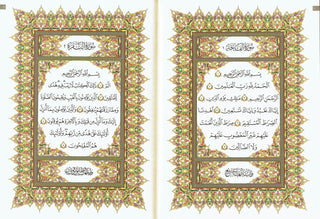 سورة الفاتحة
بسم الله الرحمن الرحيم
الحمد لله رب العالمين
الرحمن الرحيم ملك يوم الدين
إياك نعبد وإياك نستعين اهدنا
الصراط المستقيم صراط الذين أنعمت
عليهم غير المغضوب عليهم
ولا الضالين
سورة البقرة
بسم الله الرحمن الرحيم
الم ذلك الكتاب لا ريب فيه هدى
للمتقين الذين يؤمنون بالغيب ويقيمون الصلوة
ومما رزقناهم ينفقون والذين يؤمنون بما أنزل
إليك وما أنزل من قبلك وبالآخرة هم يوقنون
أولئك على هدى من ربهم وأولئك
هم المفلحون